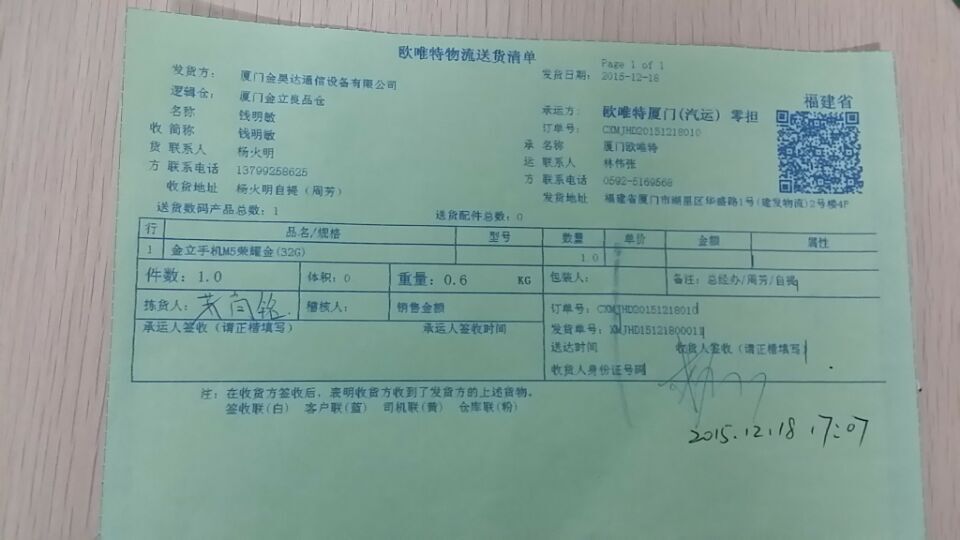 欧唯特物流送货清单
Page 1 of 1
发货方： 厦门金昊达通信设备有限公司
发货日期： 2015-12-18
逻辑仓： 厦门金立良品仓
福建省
名称 钱明敏
承运方： 欧唯特厦门(汽运) 零担
收 简称 钱明敏
订单号： CXMJHD20151218010
货 联系人 杨火明
承 名称 厦门欧唯特
方 联系电话 13799258625
运 联系人 林伟张
收货地址 杨火明自提（周芳）
方 联系电话 0592-5169568
发货地址 福建省厦门市湖里区华盛路1号(建发物流)2号楼4F
送货数码产品总数：1 送货配件总数：0
行 品名/规格 型号 数量 单价 金额 属性
1 金立手机M5荣耀金(32G) 1.0
件数：1.0 体积：0 重量：0.6 KG 包装人： 备注：总经办/周芳/自提
拣货人： 稽核人： 销售金额 订单号：CXMJHD20151218010
承运人签收（请正楷填写） 承运人签收时间 发货单号：XMJHD15121800011
送达时间 收货人签收（请正楷填写）
收货人身份证号码
注：在收货方签收后，表明收货方收到了发货方的上述货物。
签收联(白) 客户联(蓝) 司机联(黄) 仓库联(粉)
2015.12.18 17:07